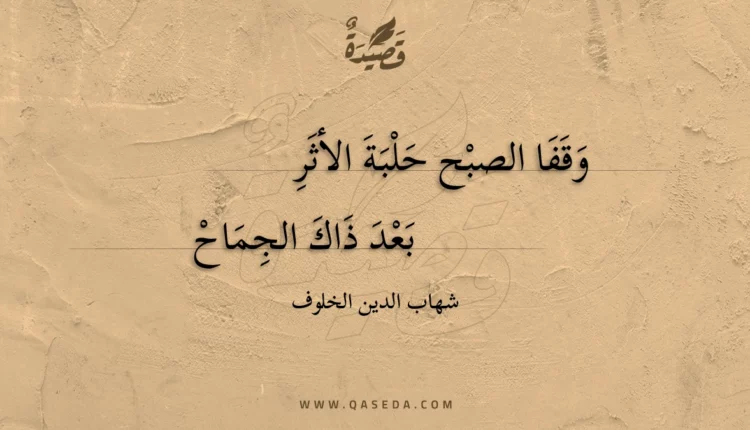 قَصِيدَةٌ
وَقَفَا الصبْح حَلْبَةَ الأثَرِ
بَعْدَ ذَاكَ الجِمَاحْ
شهاب الدين الخلوف
WWW.QASEDA.COM